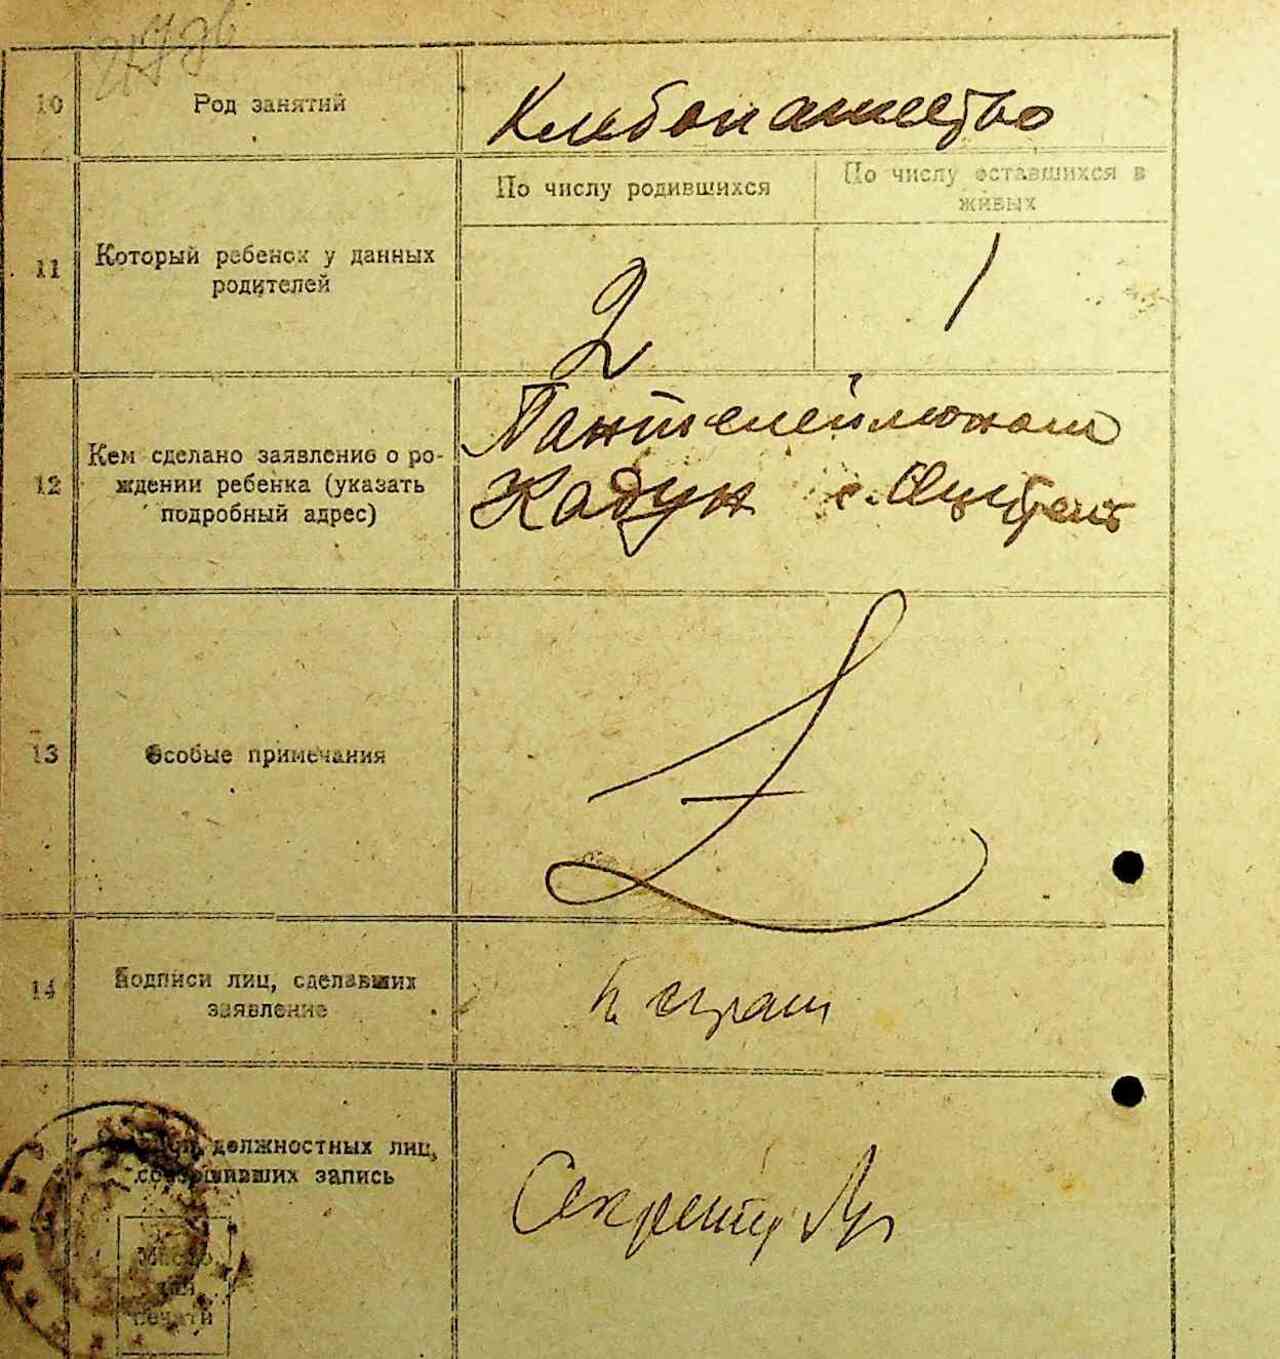 10 Род занятий Клибопашество
По числу родившихся По числу оставшихся в живых
11 Который ребенок у данных
родителей
2 1
12 Кем сделано заявление о ро-
ждении ребенка (указать
подробный адрес)
Пантелеймоном
Кадук с.
13 Особые примечания
14 Подписи лиц, сделавших
заявление
должностных лиц,
совершивших запись
Секретар
Место
для
печати